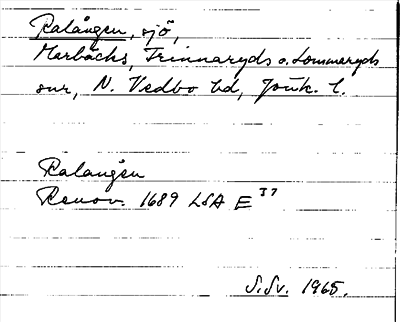 Ralången, sjö,
Marbäcks, Frinnaryds o. Lommaryds
snr, N. Vedbo hd, Jönk. l.
Ralangen
Renov. 1689 LSA E 37
S. Sv. 1965.